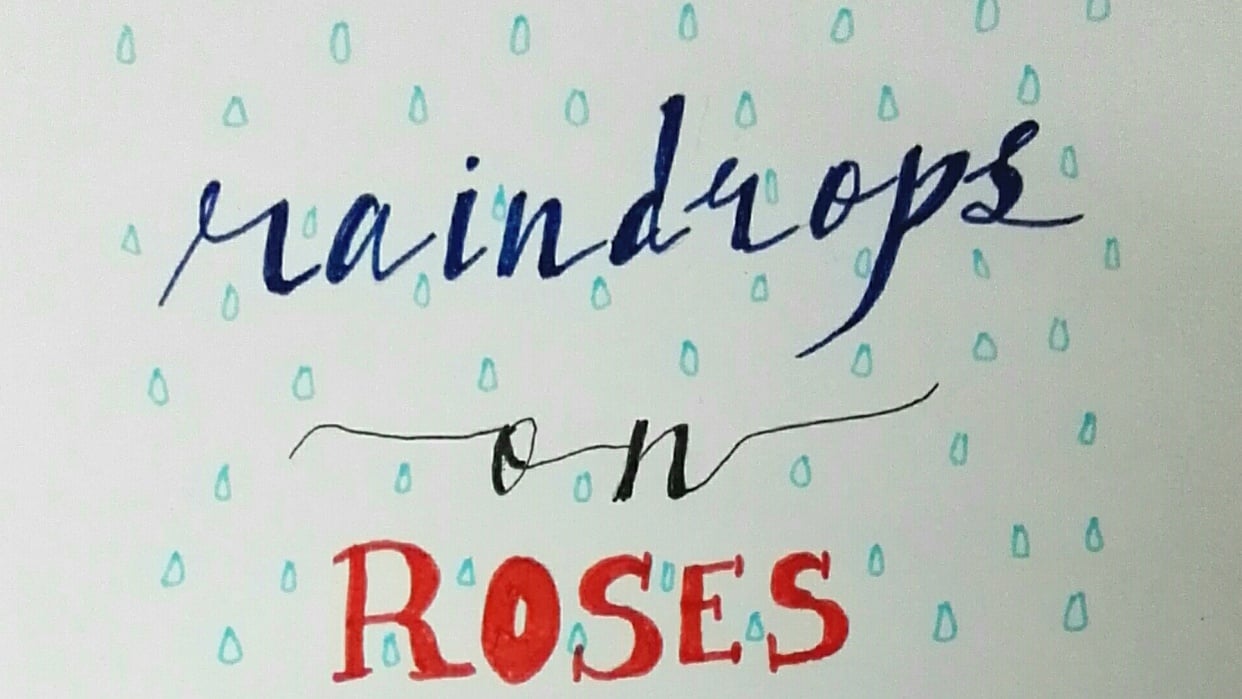 raindrops
on
ROSES